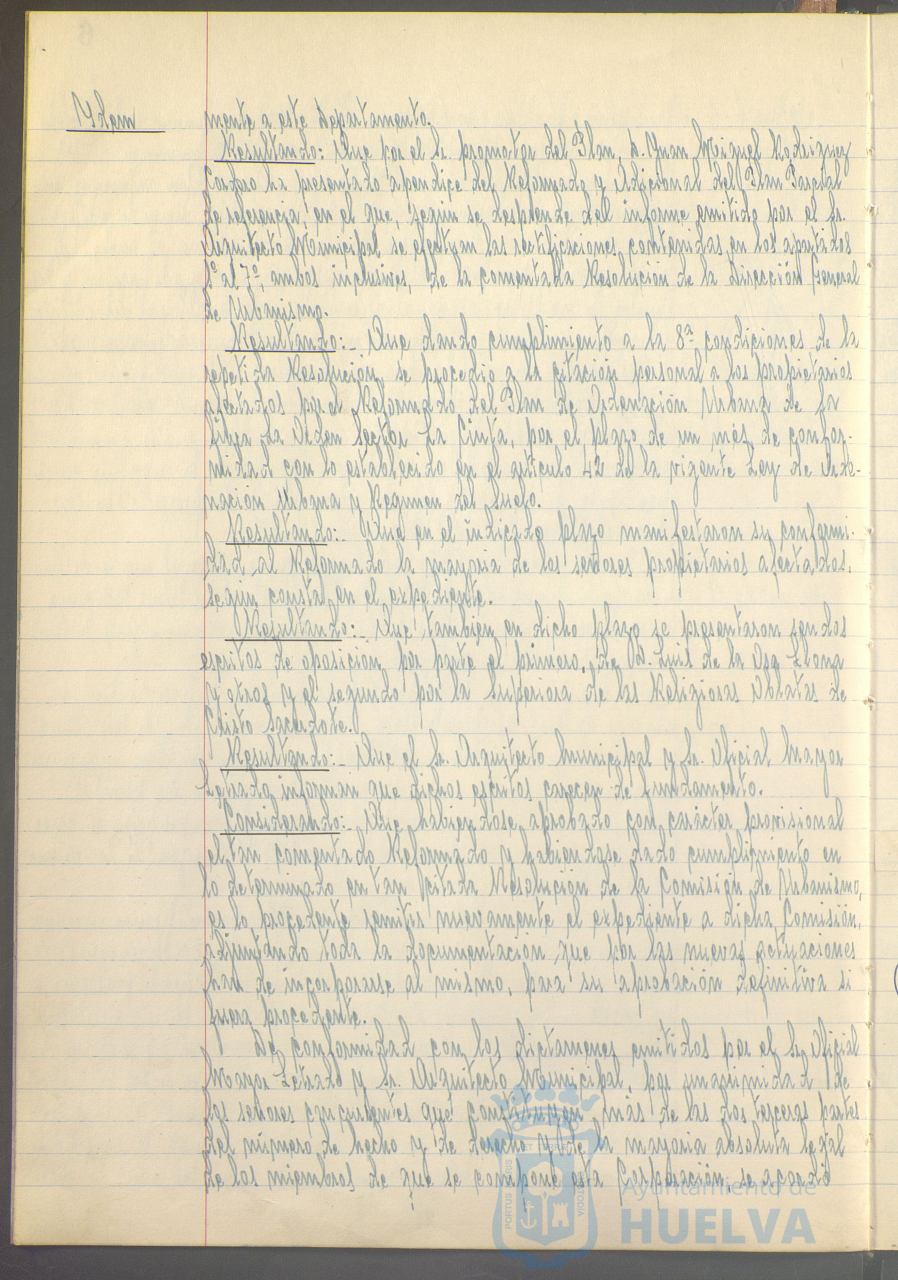 Ydem
mente a este Departamento.
Resultando: Que por el Sr. promotor del Plan, D. Juan Miguel Rodriguez
Cordero ha presentado apendice del Reformado y Adicional del Plan Parcial
de referencia, en el que, segun se desprende del informe emitido por el Sr.
Arquitecto Municipal se efectuan las rectificaciones contenidas en los apartados
1º al 7º, ambos inclusives, de la comentada Resolución de la Dirección General
de Urbanismo.
Resultando:- Que dando cumplimiento a la 8ª condiciones de la
repetida Resolución, se procedio a la citación personal a los propietarios
afectados por el Reformado del Plan de Ordenación Urbana de la
Orden Sector La Cinta, por el plazo de un mes, de confor-
midad con lo establecido en el articulo 42 de la vigente Ley de Orde-
nación Urbana y Regimen del Suelo.
Resultando:- Que en el indicado plazo manifestaron su conformi-
dad al Reformado la mayoria de los señores propietarios afectados,
segun consta en el expediente.
Resultando:- Que tambien en dicho plazo se presentaron sendos
escritos de oposición, por parte el primero, de D. Luis de la
y otros y el segundo por la Superiora de las Religiosas Oblatas de
Cristo Sacerdote.
Resultando:- Que el Sr. Arquitecto Municipal y Sr. Oficial Mayor
Letrado, informan que dichos escritos carecen de fundamento.
Considerando:- Que habiendose aprobado con carácter provisional
el tan comentado Reformado y habiendose dado cumplimiento en
lo determinado en tan citada Resolución de la Comisión de Urbanismo,
es lo procedente remitir nuevamente el expediente a dicha Comisión,
adjuntando toda la documentación que por las nuevas actuaciones
han de incorporarse al mismo, para su aprobación definitiva si
fuera procedente.
De conformidad con los dictamenes emitidos por el Sr. Oficial
Mayor Letrado y Sr. Arquitecto Municipal, por unanimidad de
los señores concurrentes que constituyen más de las dos terceras partes
del número de hecho y de derecho y de la mayoria absoluta legal
de los miembros de que se compone esta Corporación, se acordó
Ayuntamiento de
HUELVA